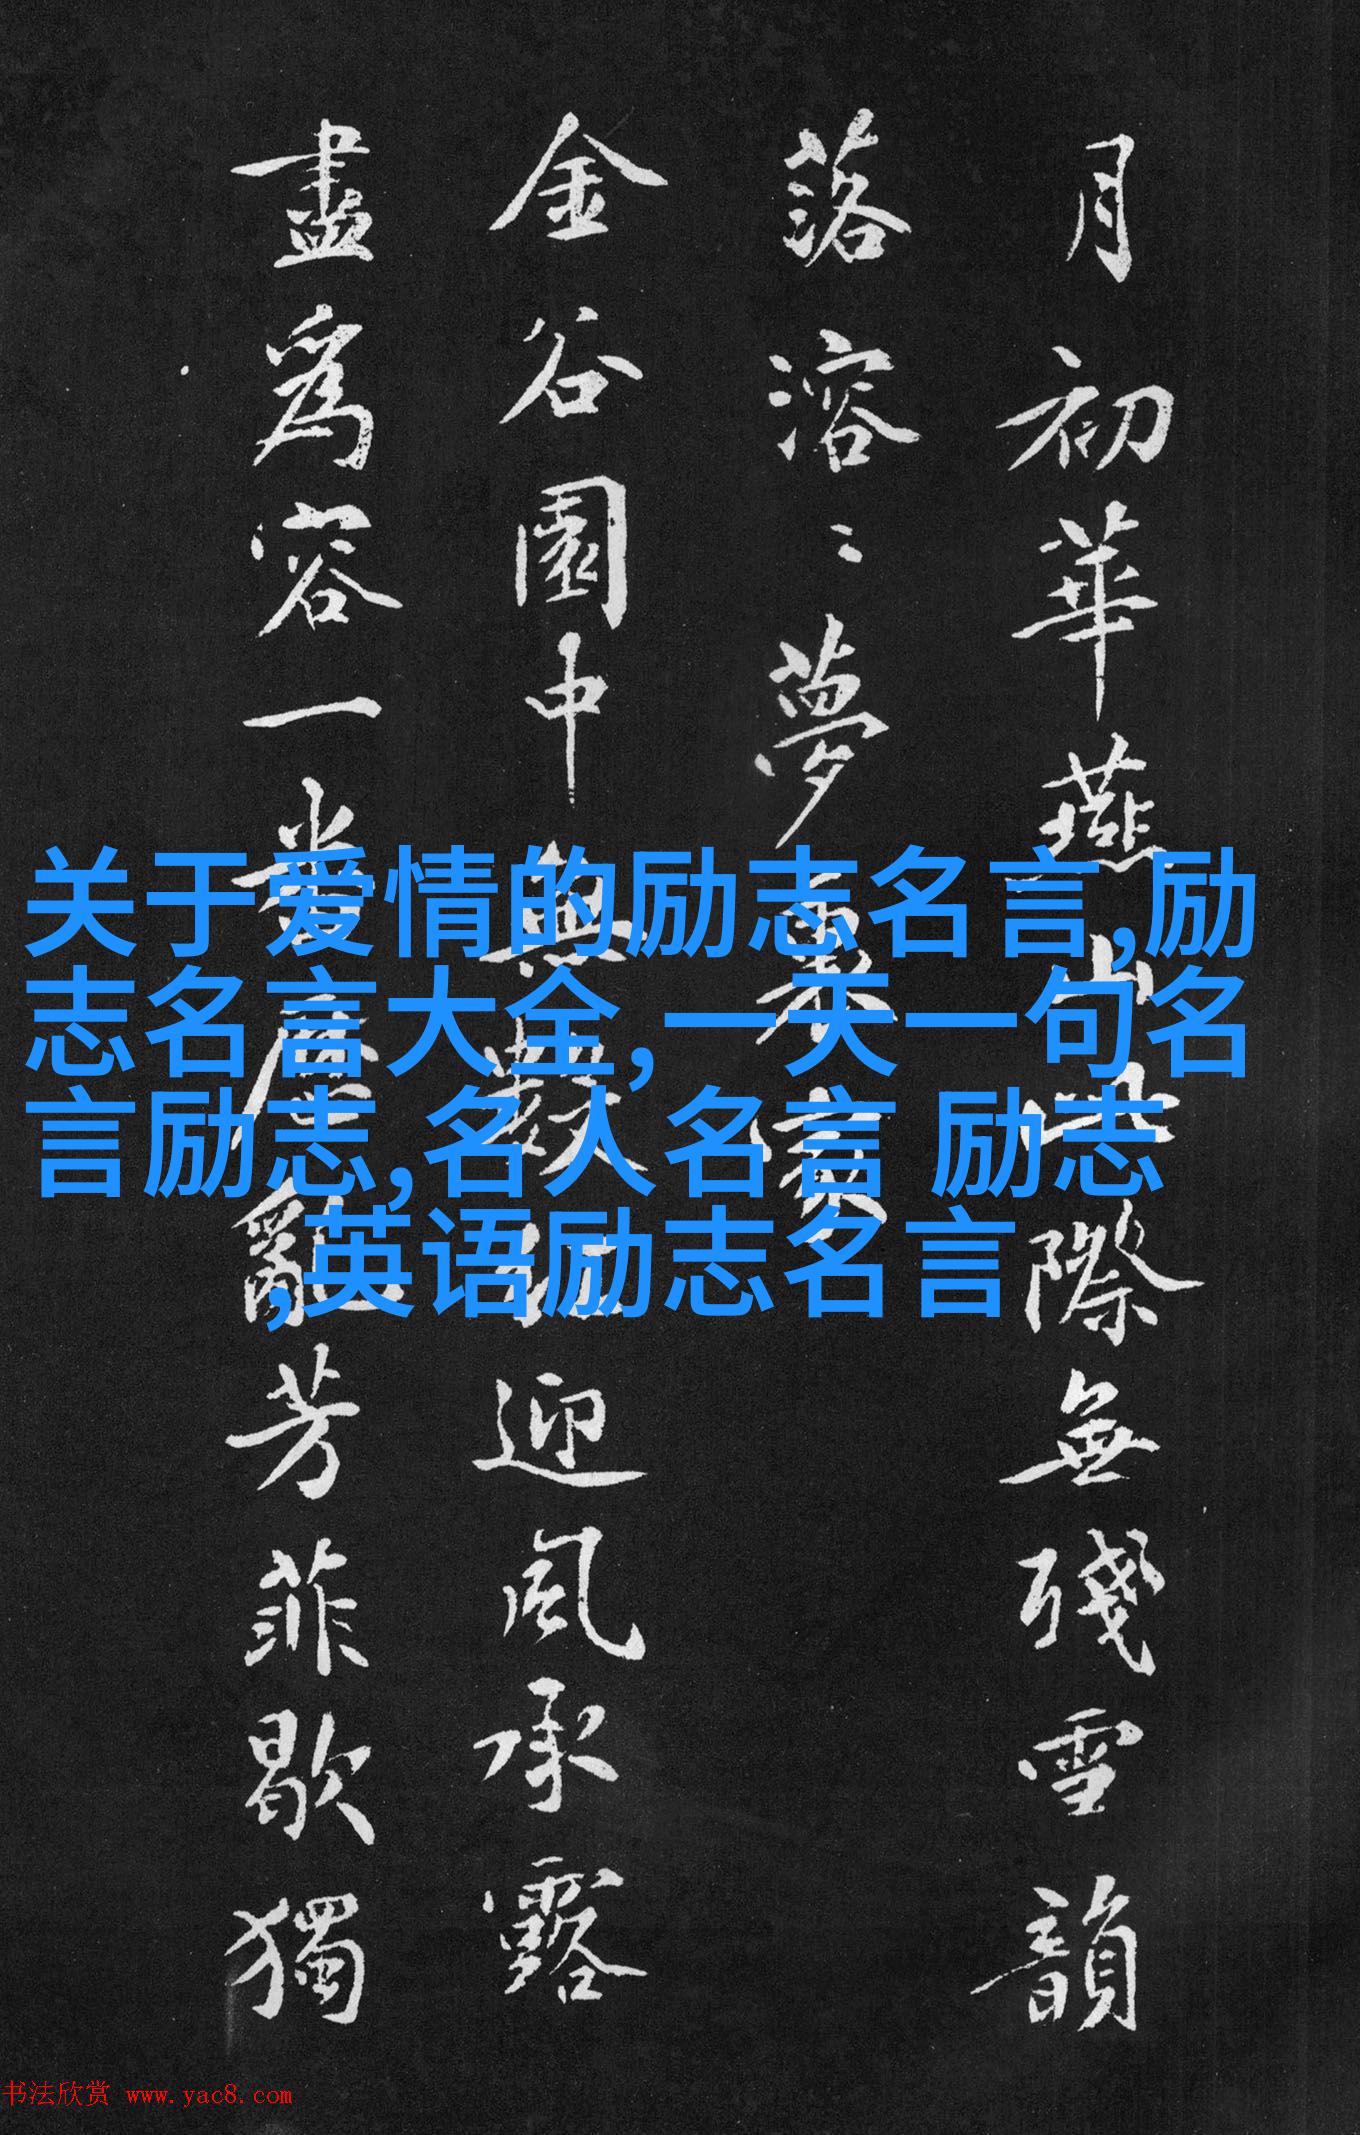 月初華燕山此際無殘雪韻
落溶〻夢裏家
金谷園中與數枝迎風承露
盡為容一業塵亂芳菲歇獨
关于爱情的励志名言,励
志名言大全,一天一句名
言励志,名人名言 励志
,英语励志名言
书法欣赏 www.yac8.com